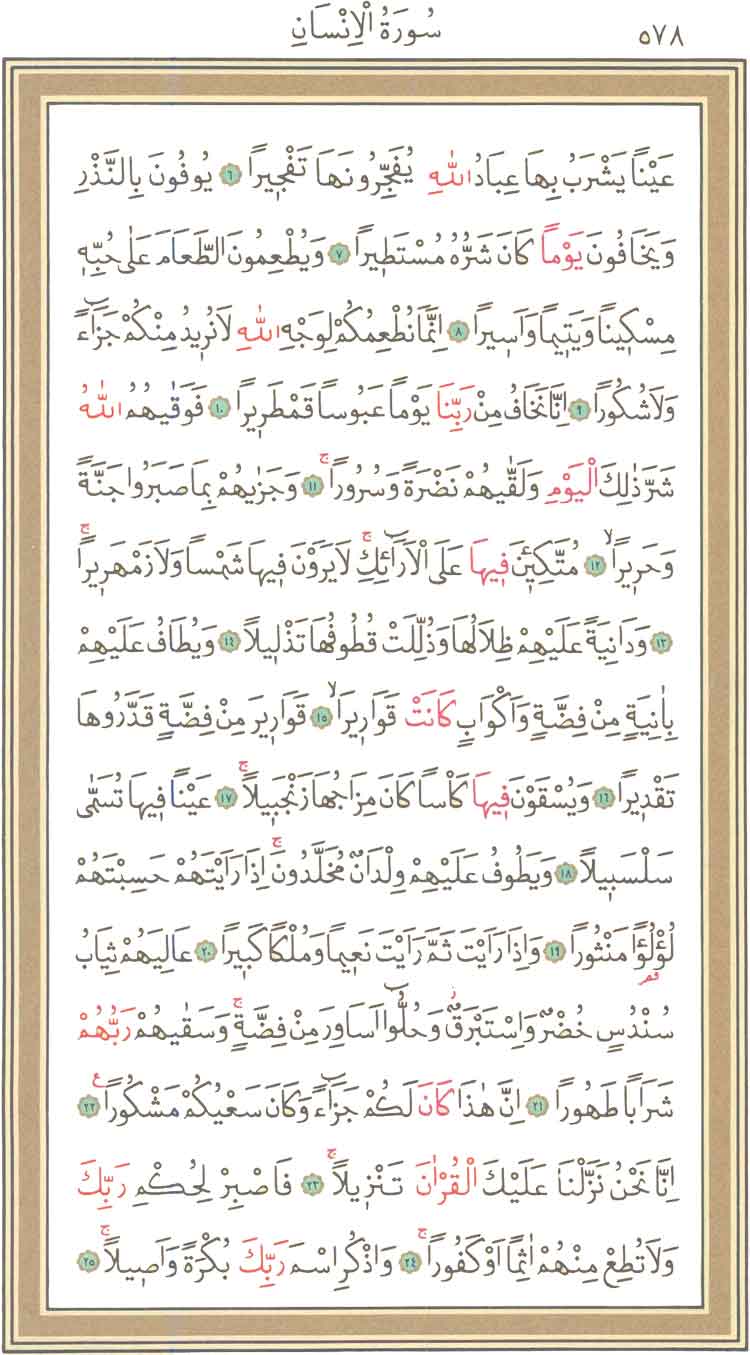 سُورَةُ الْاِنْسَانِ ٥٧٨
عَيْنًا يَشْرَبُ بِهَا عِبَادُ اللّٰهِ يُفَجِّرُونَهَا تَفْجٖيرًا ٦ يُوفُونَ بِالنَّذْرِ
وَيَخَافُونَ يَوْمًا كَانَ شَرُّهُ مُسْتَطٖيرًا ٧ وَيُطْعِمُونَ الطَّعَامَ عَلٰى حُبِّهٖ
مِسْكٖينًا وَيَتٖيمًا وَاَسٖيرًا ٨ اِنَّمَا نُطْعِمُكُمْ لِوَجْهِ اللّٰهِ لَا نُرٖيدُ مِنْكُمْ جَزَٓاءً
وَلَا شُكُورًا ٩ اِنَّا نَخَافُ مِنْ رَبِّنَا يَوْمًا عَبُوسًا قَمْطَرٖيرًا ١٠ فَوَقٰيهُمُ اللّٰهُ
شَرَّ ذٰلِكَ الْيَوْمِ وَلَقّٰيهُمْ نَضْرَةً وَسُرُورًاۚ ١١ وَجَزٰيهُمْ بِمَا صَبَرُوا جَنَّةً
وَحَرٖيرًاۙ ١٢ مُتَّكِـٖٔينَ فٖيهَا عَلَى الْاَرَٓائِكِۚ لَا يَرَوْنَ فٖيهَا شَمْسًا وَلَا زَمْهَرٖيرًاۚ
١٣ وَدَانِيَةً عَلَيْهِمْ ظِلَالُهَا وَذُلِّلَتْ قُطُوفُهَا تَذْلٖيلًا ١٤ وَيُطَافُ عَلَيْهِمْ
بِاٰنِيَةٍ مِنْ فِضَّةٍ وَاَكْوَابٍ كَانَتْ قَوَارٖيرَاۙ ١٥ قَوَارٖيرَ مِنْ فِضَّةٍ قَدَّرُوهَا
تَقْدٖيرًا ١٦ وَيُسْقَوْنَ فٖيهَا كَأْسًا كَانَ مِزَاجُهَا زَنْجَبٖيلًاۚ ١٧ عَيْنًا فٖيهَا تُسَمّٰى
سَلْسَبٖيلًا ١٨ وَيَطُوفُ عَلَيْهِمْ وِلْدَانٌ مُخَلَّدُونَۚ اِذَا رَاَيْتَهُمْ حَسِبْتَهُمْ
لُؤْلُؤًا مَنْثُورًا ١٩ وَاِذَا رَاَيْتَ ثَمَّ رَاَيْتَ نَعٖيمًا وَمُلْكًا كَبٖيرًا ٢٠ عَالِيَهُمْ ثِيَابُ
سُنْدُسٍ خُضْرٌ وَاِسْتَبْرَقٌؗ وَحُلُّٓوا اَسَاوِرَ مِنْ فِضَّةٍۚ وَسَقٰيهُمْ رَبُّهُمْ
شَرَابًا طَهُورًا ٢١ اِنَّ هٰذَا كَانَ لَكُمْ جَزَٓاءً وَكَانَ سَعْيُكُمْ مَشْكُورًا ع ٢٢
اِنَّا نَحْنُ نَزَّلْنَا عَلَيْكَ الْقُرْاٰنَ تَنْزٖيلًاۚ ٢٣ فَاصْبِرْ لِحُكْمِ رَبِّكَ
وَلَا تُطِعْ مِنْهُمْ اٰثِمًا اَوْ كَفُورًاۚ ٢٤ وَاذْكُرِ اسْمَ رَبِّكَ بُكْرَةً وَاَصٖيلًاۚ ٢٥